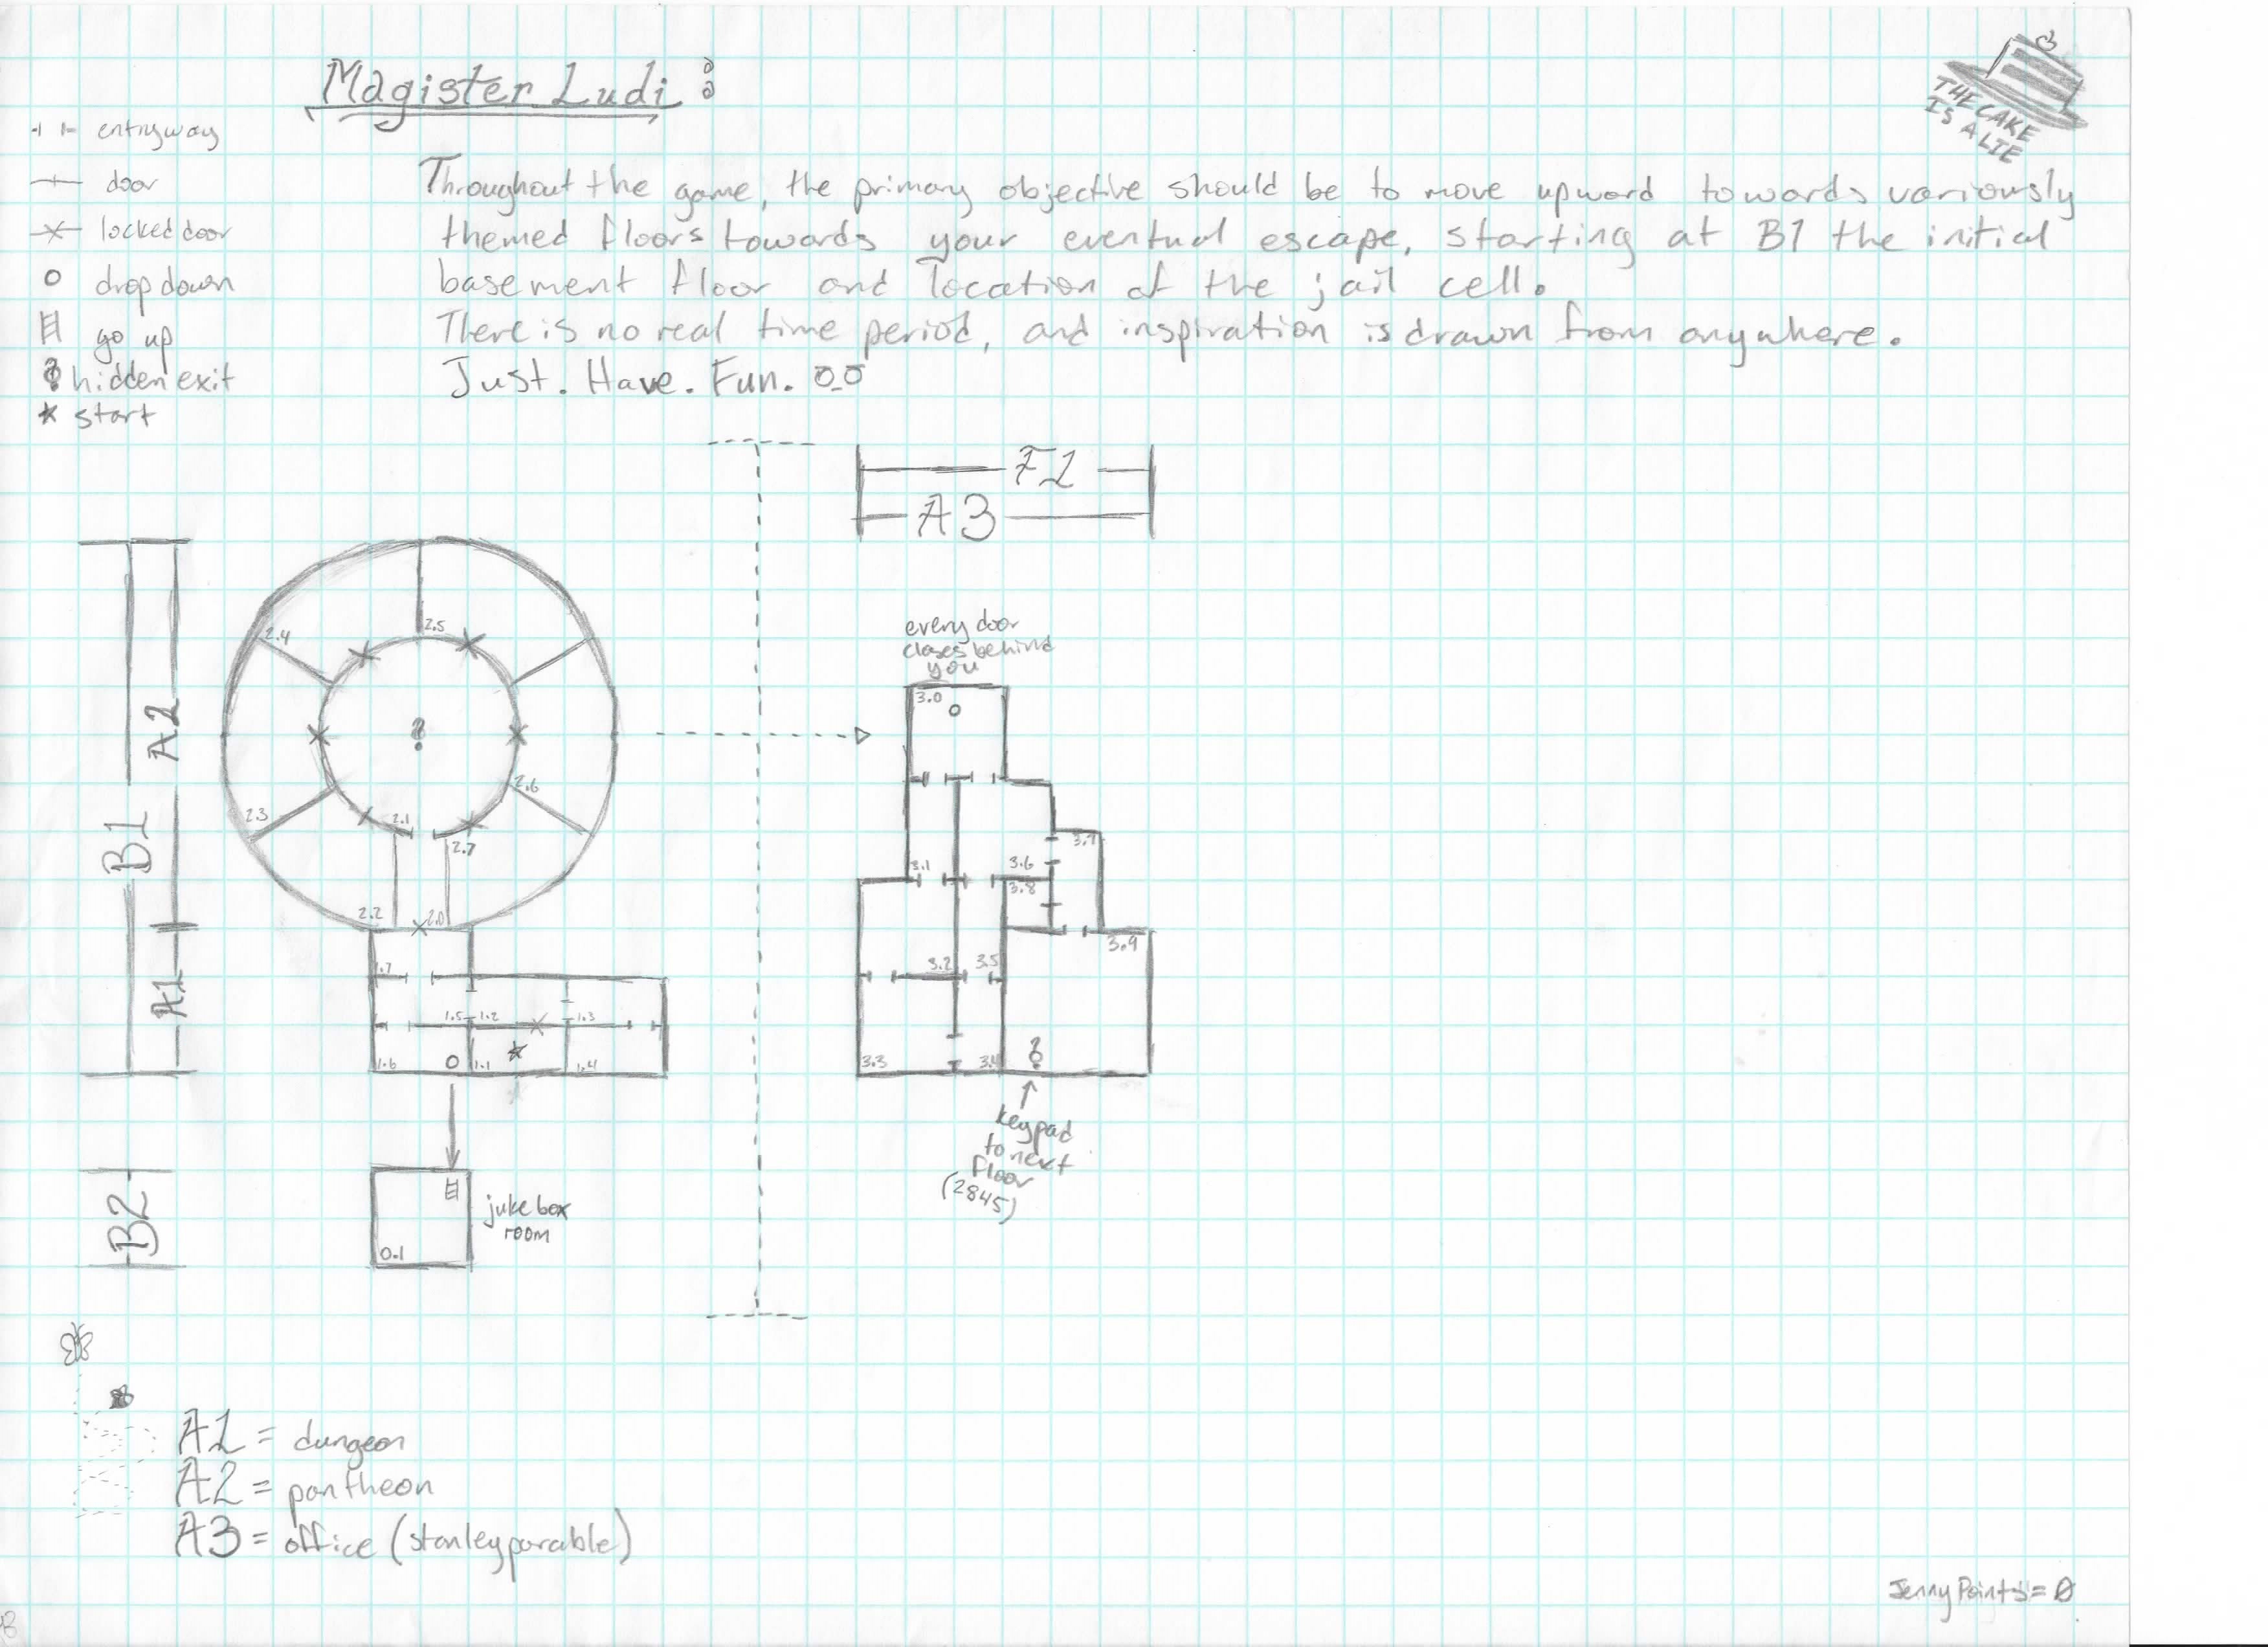 Magister Ludi:
THE CAKE
IS A LIE
entryway
door
locked door
drop down
go up
? hidden exit
start
Throughout the game, the primary objective should be to move upward towards variously
themed floors towards your eventual escape, starting at B1 the initial
basement floor and location of the jail cell.
There is no real time period, and inspiration is drawn from anywhere.
Just. Have. Fun. O_O
F1
A3
B1
A2
A1
B2
2.5
2.4
?
2.6
2.3
2.1
2.7
2.2
2.0
1.7
1.5
1.2
1.3
1.6
1.1
1.4
0.1
juke box
room
every door
closes behind
you
3.0
3.7
3.1
3.6
3.8
3.9
3.2
3.5
3.3
3.4
?
keypad
to next
floor
(2845)
A1 = dungeon
A2 = pantheon
A3 = office (stanley parable)
Jenny Points = 0